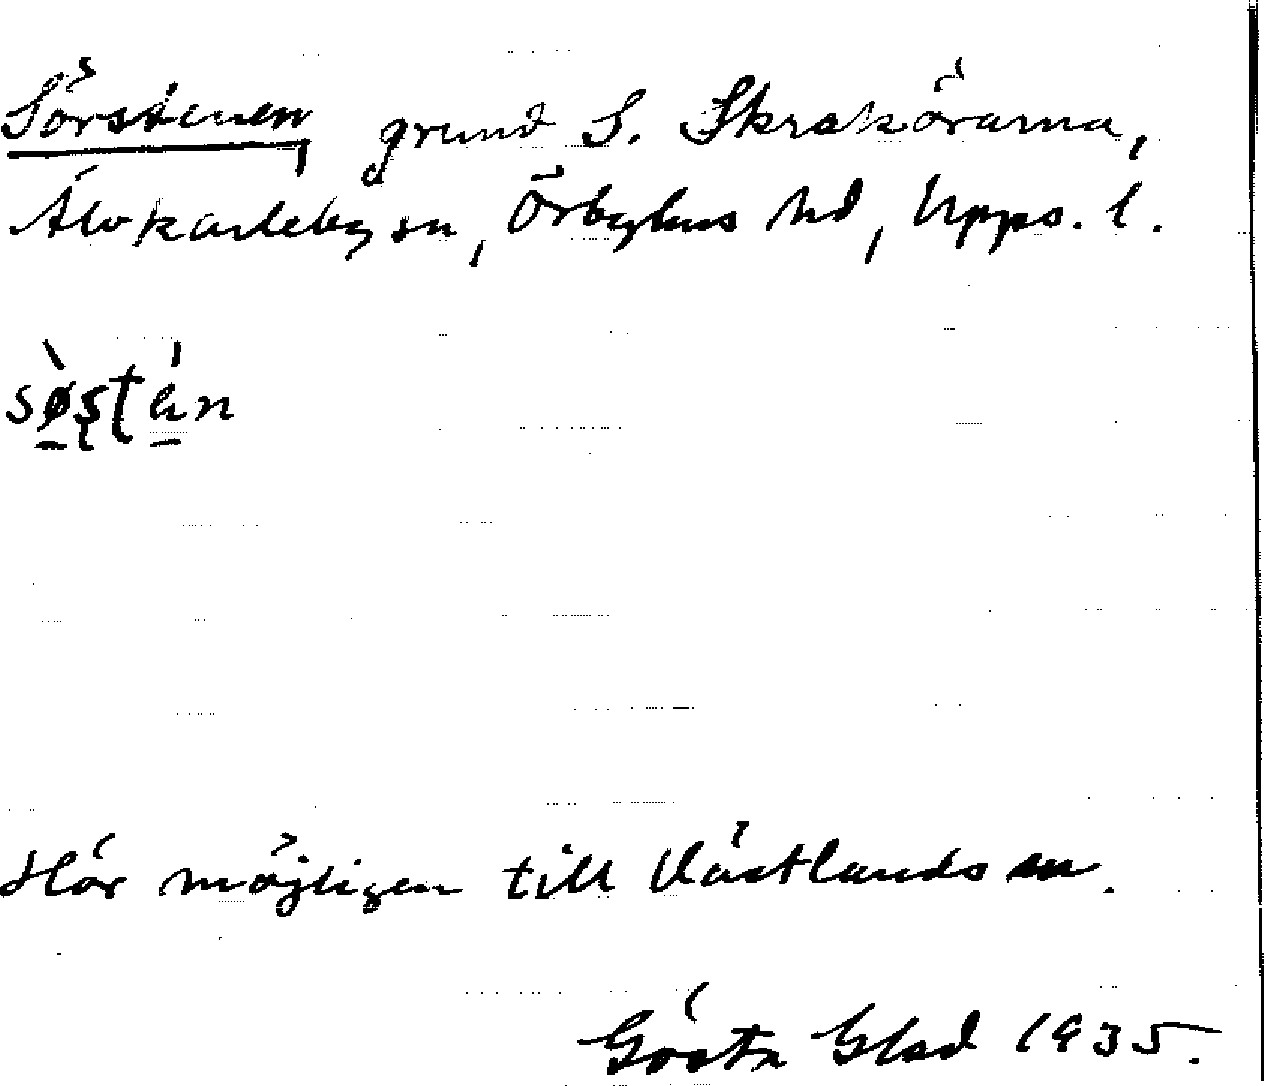 Sörstenen, grund S. Skrakörarna,
Älvkarleby sn, Örbyhus hd, Upps. l.
Hör möjligen till Västlands sn.
Gösta Glad 1935.